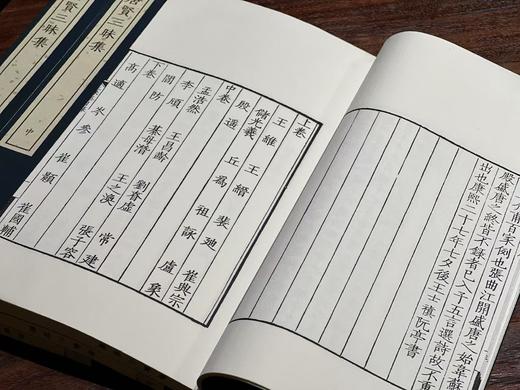 介甫百家例也張曲江開盛唐之始韋蘇
殿盛唐之終皆不錄者已入予五言選詩故不
出也康熙二十七年七夕後王士禛阮亭書
上卷
王維 王縉 裴迪 崔興宗
儲光羲
殷遙 丘爲 祖詠 盧象
中卷
孟浩然
李頎 王昌齡 劉眘虛 常建
閻防 綦毋潛 王之渙 張子容
下卷
高適 岑參 崔顥 崔國輔
唐賢三昧集
中
賢三昧集